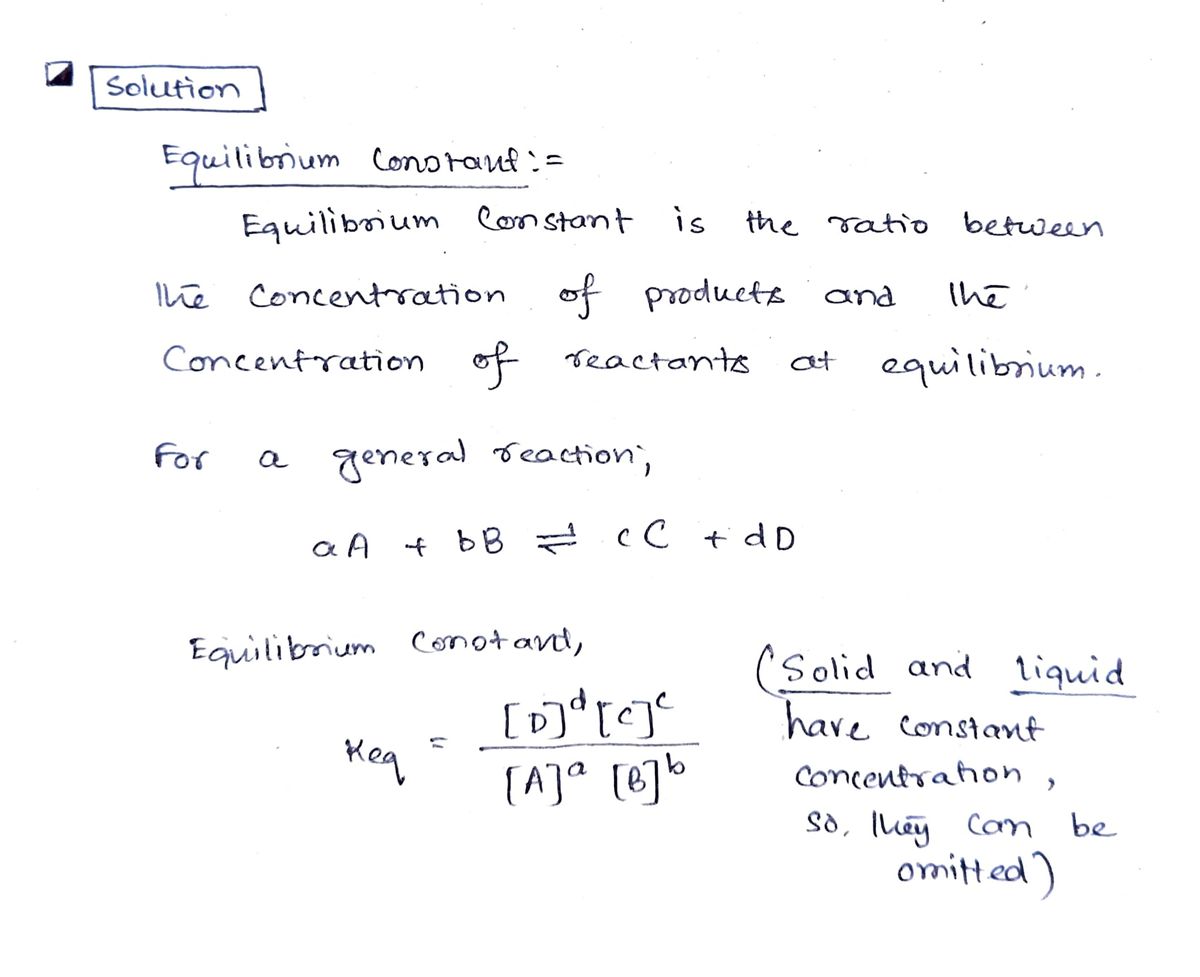 Solution
Equilibrium Constant :=
Equilibrium Constant is the ratio between
the Concentration of products and the
Concentration of reactants at equilibrium.
For a general reaction;
aA + bB ⇌ cC + dD
Equilibrium Constant,
Keq = [D]^d [C]^c / [A]^a [B]^b
(Solid and liquid
have constant
concentration,
so, they can be
omitted)